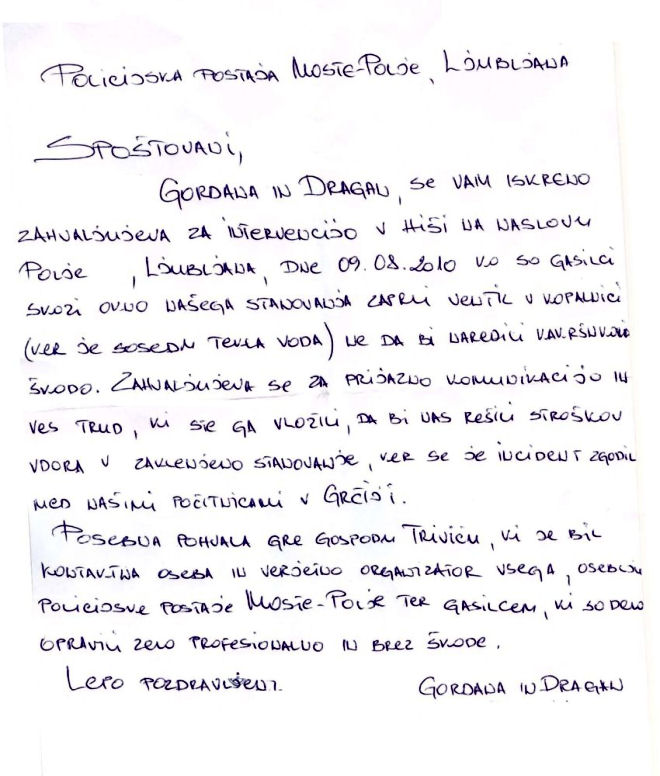 POLICIJSKA POSTAJA MOSTE-POLJE, LJUBLJANA
SPOŠTOVANI,
GORDANA IN DRAGAN, SE VAM ISKRENO
ZAHVALJUJEVA ZA INTERVENCIJO V HIŠI NA NASLOVU
POLJE , LJUBLJANA, DNE 09.08.2010 KO SO GASILCI
SKOZI OKNO NAŠEGA STANOVANJA ZAPRLI VENTIL V KOPALNICI
(KER JE SOSEDU TEKLA VODA) NE DA BI NAREDILI KAKRŠNOKOLI
ŠKODO. ZAHVALJUJEVA SE ZA PRIJAZNO KOMUNIKACIJO IN
VES TRUD, KI STE GA VLOŽILI, DA BI NAS REŠILI STROŠKOV
VDORA V ZAKLENJENO STANOVANJE, KER SE JE INCIDENT ZGODIL
MED NAŠIMI POČITNICAMI V GRČIJI.
POSEBNA POHVALA GRE GOSPODU TRIVIĆU, KI JE BIL
KONTAKTNA OSEBA IN VERJETNO ORGANIZATOR VSEGA, OSEBJU
POLICIJSKE POSTAJE MOSTE-POLJE TER GASILCEM, KI SO DELO
OPRAVILI ZELO PROFESIONALNO IN BREZ ŠKODE.
LEPO POZDRAVLJENI. GORDANA IN DRAGAN